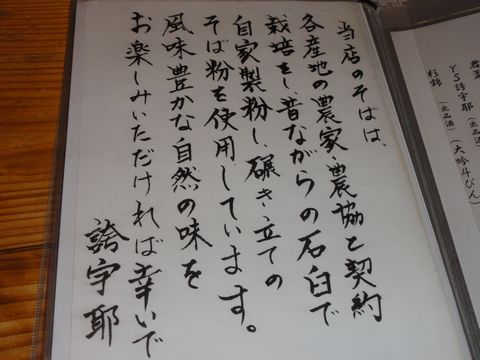 当店のそばは、
各産地の農家、農協と契約
栽培をし、昔ながらの石臼で
自家製粉し、碾き立ての
そば粉を使用しています。
風味豊かな自然の味を
お楽しみいただければ幸いで
誇宇耶
YS誇宇耶（出品酒）（大吟斗びん）
杉錦（出品酒）